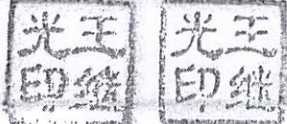 王继光印
王继光印